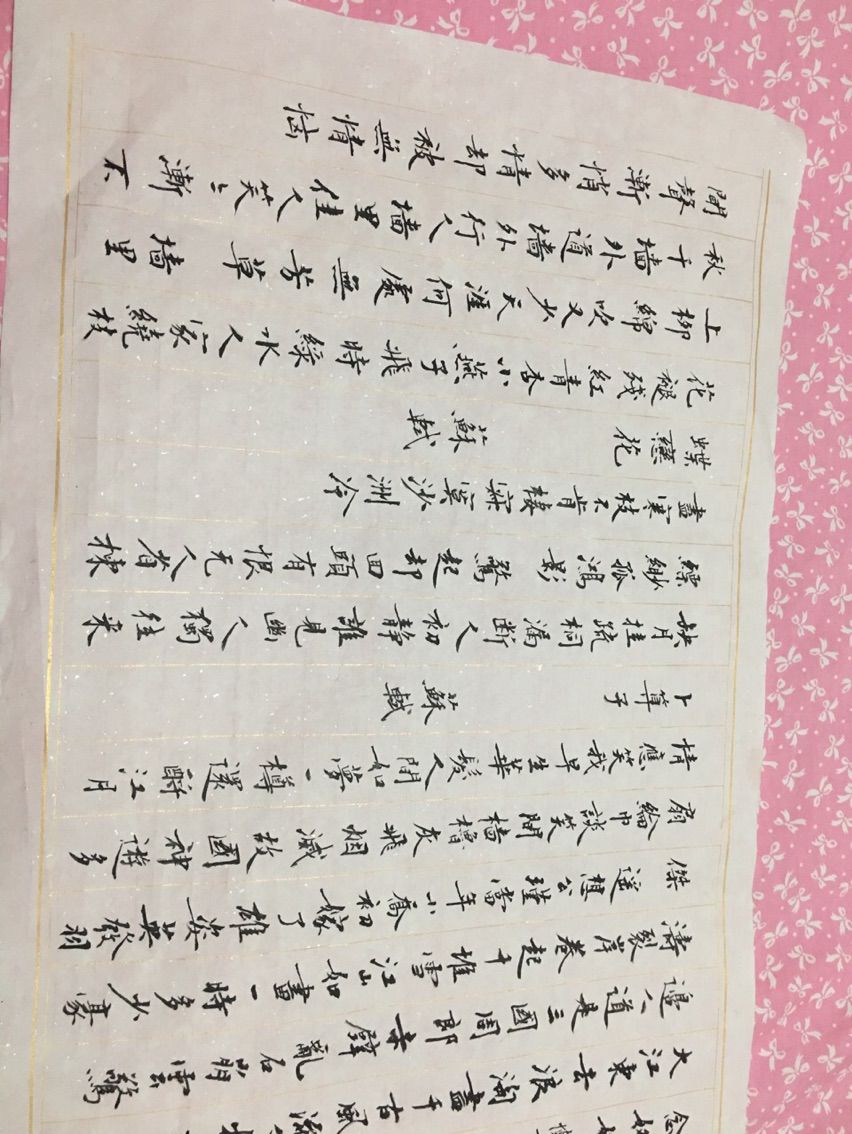 念奴
大江東去浪淘盡千古風
邊人道是三國周郎赤壁亂石崩雲驚
濤裂岸卷起千堆雪江山如畫一時多少豪
傑遥想公瑾當年小喬初嫁了雄姿英發羽
扇綸巾談笑間檣櫓灰飛烟滅故國神遊多
情應笑我早生華髮人間如夢一樽還酹江月
卜算子 蘇軾
缺月挂疏桐漏断人初静誰見幽人獨往来
縹緲孤鴻影驚起却回頭有恨无人省揀
盡寒枝不肯棲寂寞沙洲冷
蝶戀花 蘇軾
花褪殘紅青杏小燕子飛時綠水人家繞枝
上柳綿吹又少天涯何處無芳草墙里
秋千墙外道墙外行人墙里佳人笑漸不
聞聲漸悄多情却被無情惱